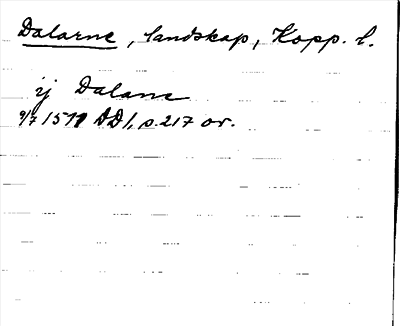 Dalarne, landskap, Kopp. l.
ij Dalane
9/7 1511 DD1, s. 217 or.